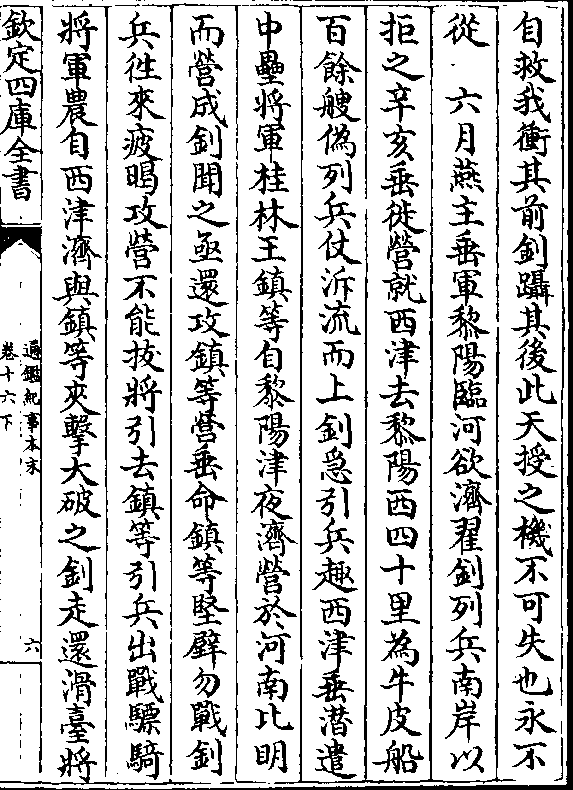 自救我衝其前釗躡其後此天授之機不可失也永不
從　六月燕主垂軍黎陽臨河欲濟翟釗列兵南岸以
拒之辛亥垂徙營就西津去黎陽西四十里為牛皮船
百餘艘偽列兵仗泝流而上釗急引兵趣西津垂潛遣
中壘將軍桂林王鎮等自黎陽津夜濟營於河南比明
而營成釗聞之亟還攻鎮等營垂命鎮等堅壁勿戰釗
兵徃來疲暍攻營不能拔將引去鎮等引兵出戰驃騎
將軍農自西津濟與鎮等夾擊大破之釗走還滑臺將
欽定四庫全書
通鑑紀事本末
卷十六下
六